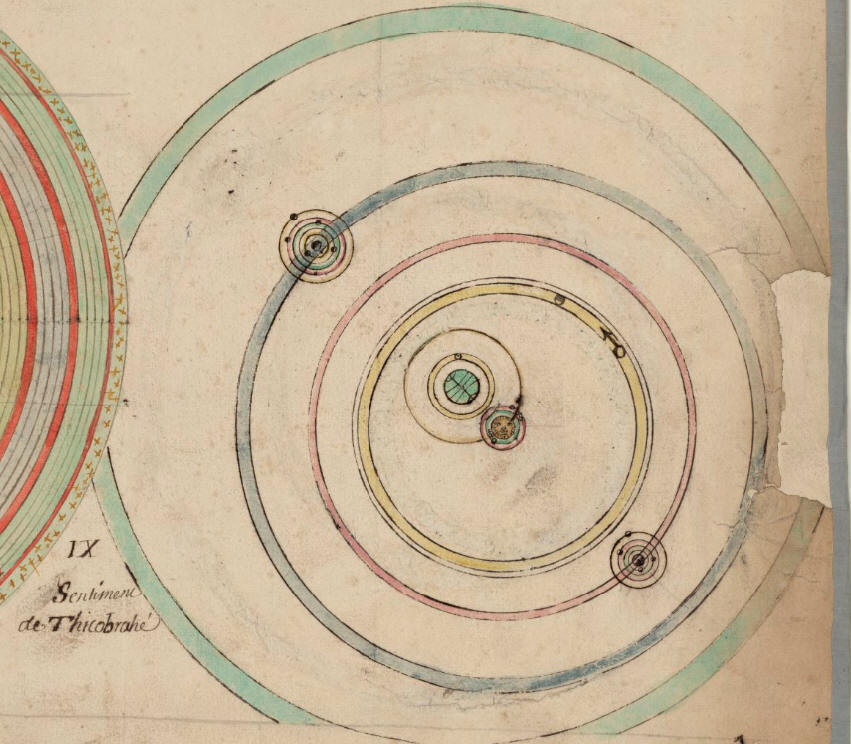 IX
Sentiment
de Thicobrahé